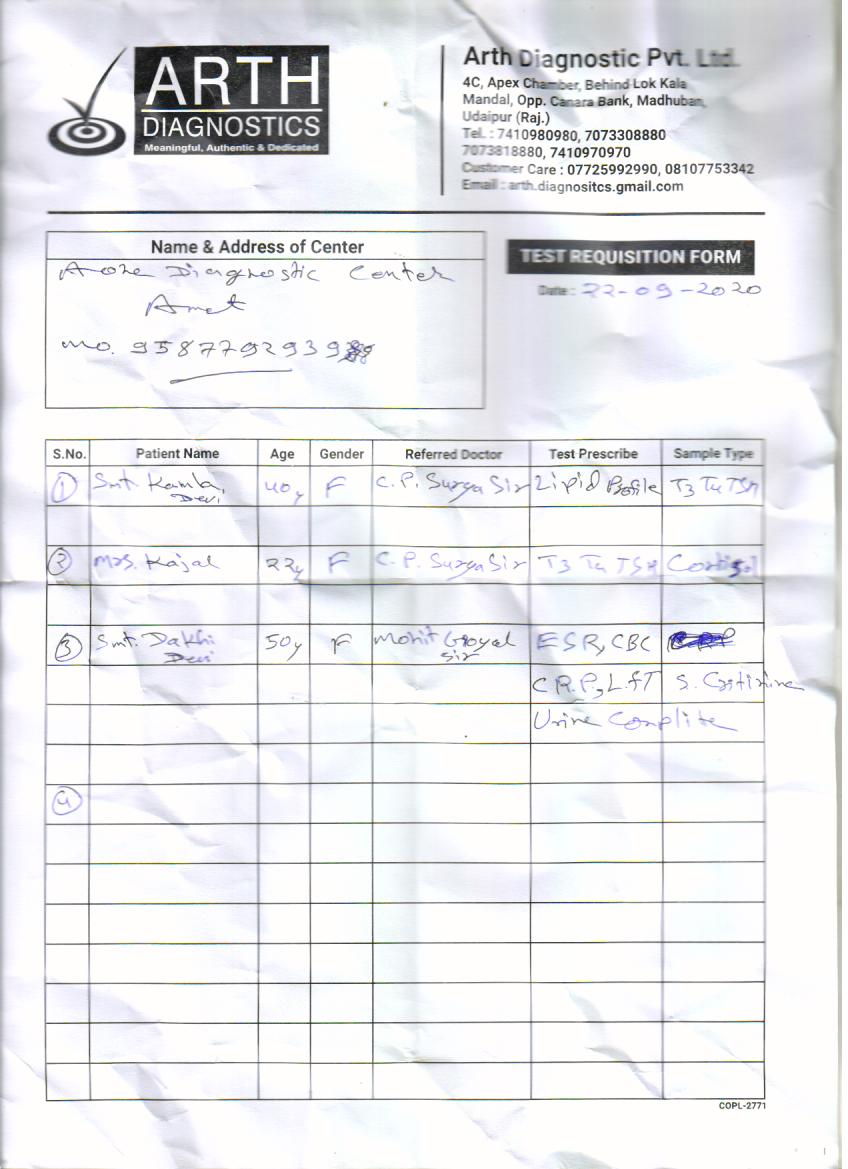 ARTH
DIAGNOSTICS
Meaningful, Authentic & Dedicated
Arth Diagnostic Pvt. Ltd.
4C, Apex Chamber, Behind Lok Kala
Mandal, Opp. Canara Bank, Madhuban,
Udaipur (Raj.)
Tel. : 7410980980, 7073308880
7073818880, 7410970970
Customer Care : 07725992990, 08107753342
Email : arth.diagnositcs.gmail.com
Name & Address of Center
Diagnostic Center
Amet
mo. 9587792939
TEST REQUISITION FORM
Date : 22-09-2020
S.No. Patient Name Age Gender Referred Doctor Test Prescribe Sample Type
1 Smt. Kamla Devi 40y F C.P. Surya Sir Lipid Profile T3 T4 TSH
2 Mrs. Kajal 22y F C.P. Surya Sir T3 T4 TSH Cortisol
3 Smt. Dakhi Devi 50y F Mohit Goyal Sir ESR, CBC
C R.P, L.fT S.
Urine Complite
4
COPL-2771